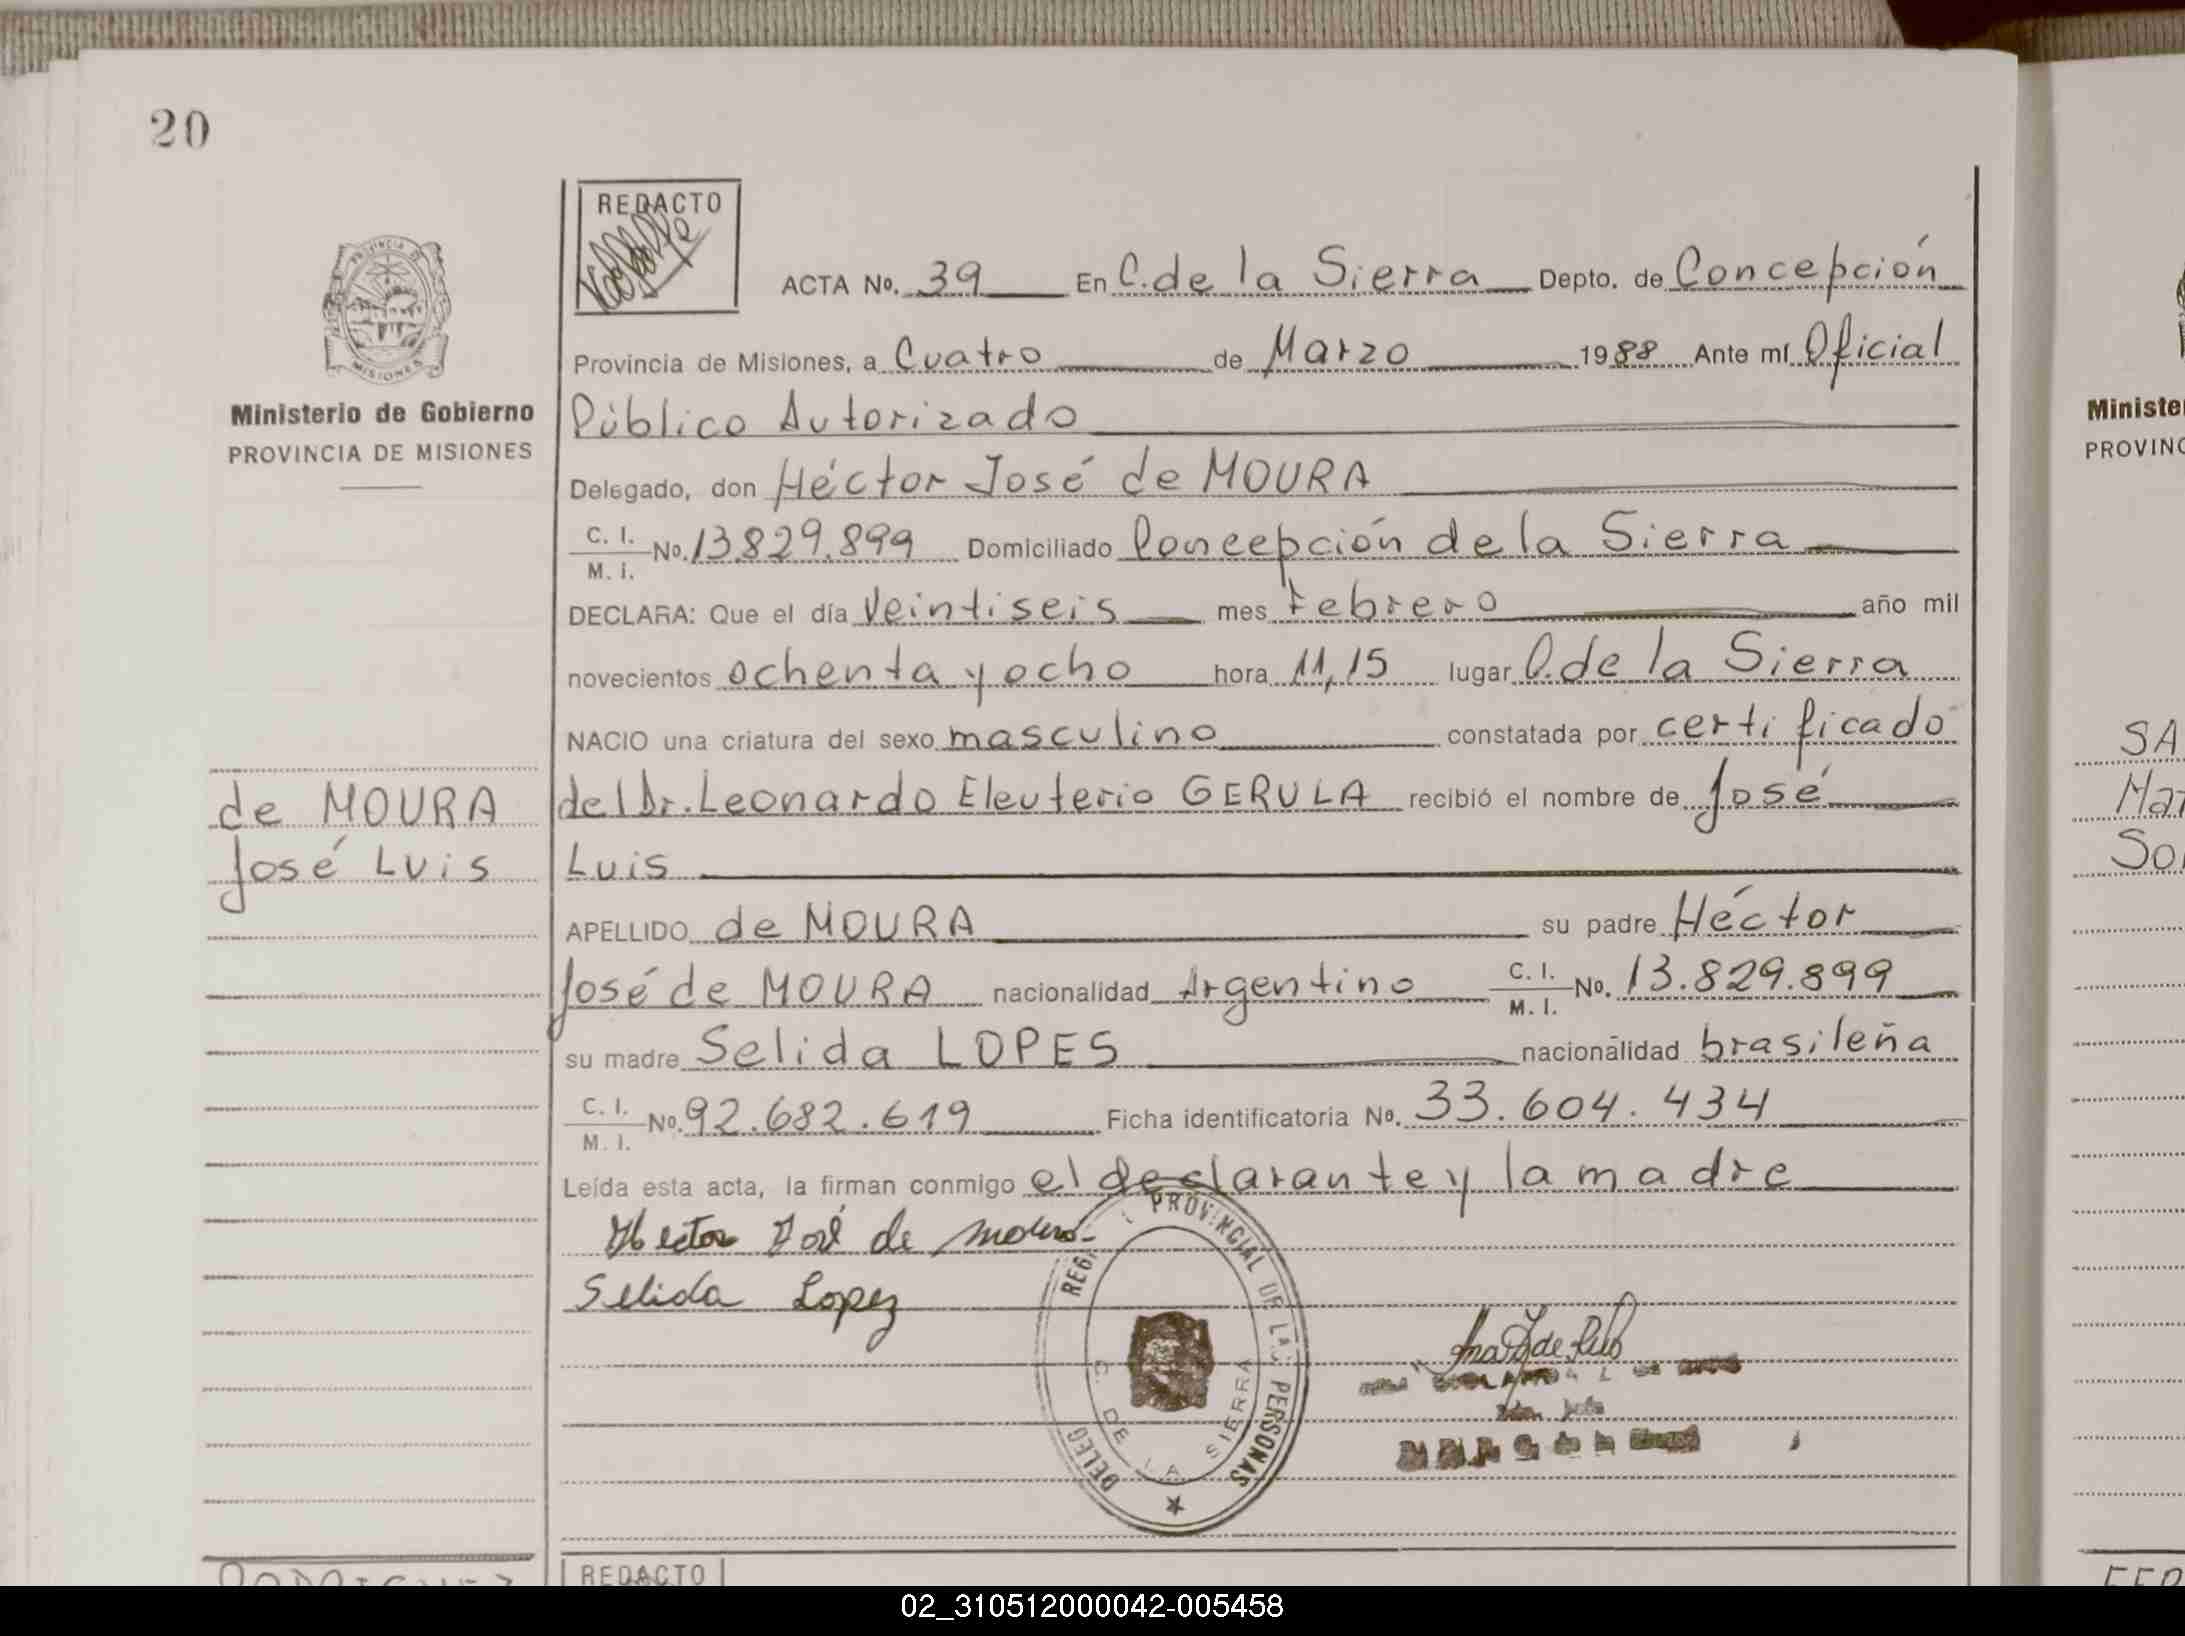 20
REDACTO
PROVINCIA DE
MISIONES
ACTA No. 39 En C. de la Sierra Depto. de Concepción
Provincia de Misiones, a Cuatro de Marzo 1988 Ante mí Oficial
Ministerio de Gobierno
PROVINCIA DE MISIONES
Público Autorizado
Delegado, don Héctor José de MOURA
C. I.
M. I. No. 13.829.899 Domiciliado Concepción de la Sierra
DECLARA: Que el día Veintiseis mes Febrero año mil
novecientos ochenta y ocho hora 11,15 lugar C. de la Sierra
NACIO una criatura del sexo masculino constatada por certificado
de MOURA
José Luis
del Dr. Leonardo Eleuterio GERULA recibió el nombre de José
Luis
APELLIDO de MOURA su padre Héctor
José de MOURA nacionalidad Argentino C. I. M. I. No. 13.829.899
su madre Selida LOPES nacionalidad brasileña
C. I.
M. I. No. 92.682.619 Ficha identificatoria No. 33.604.434
Leída esta acta, la firman conmigo el declarante y la madre
Hector José de Moura
Selida Lopez
PROVINCIAL DE LAS PERSONAS
DELEG
C. DE LA SIERRA
REDACTO
Ministe
PROVINC
SA
Mar
02_310512000042-005458